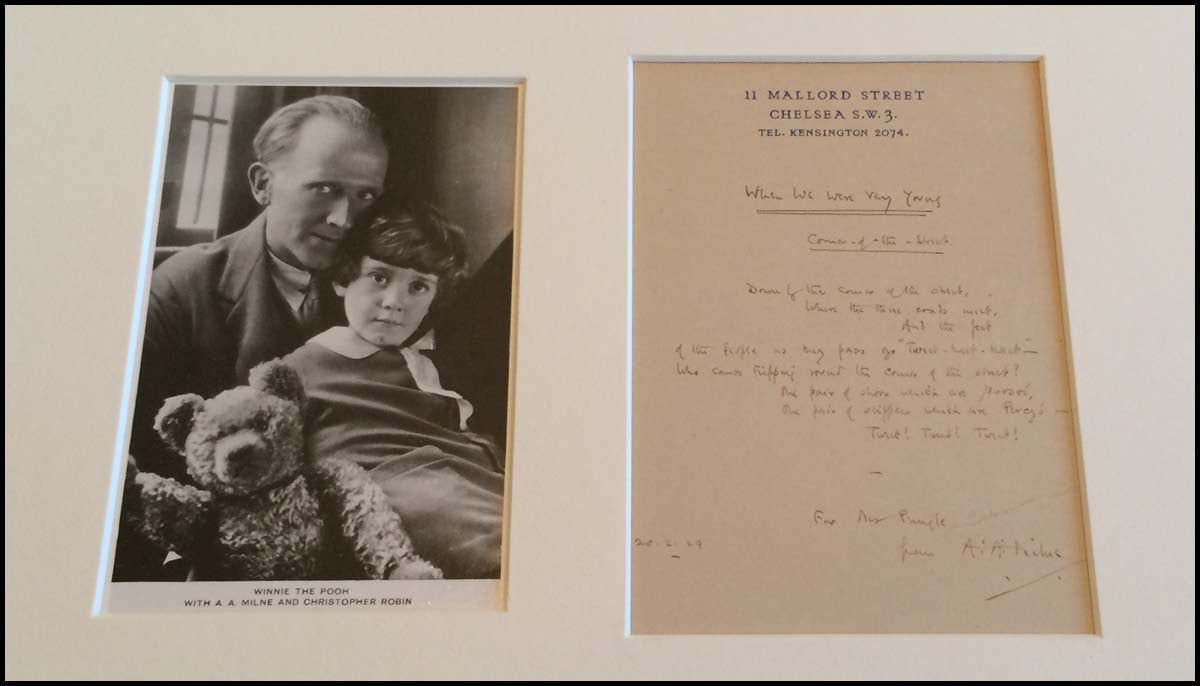 WINNIE THE POOH
WITH A. A. MILNE AND CHRISTOPHER ROBIN
11 MALLORD STREET
CHELSEA S.W.3.
TEL. KENSINGTON 2074.
When We were Very Young
Corner-of-the-Street
Down by the corner of the street,
Where the three roads meet,
And the feet
of the people as they pass go "Tweet-tweet-tweet"—
Who comes tripping round the corner of the street?
One pair of shoes which are Nurse's,
One pair of slippers which are Percy's—
Tweet! Tweet! Tweet!
—
For Pringle
from A. A. Milne
20.2.29